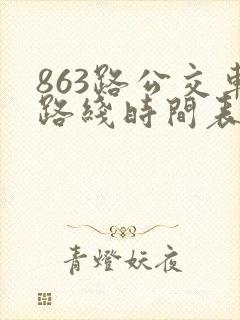 863路公交車
路綫時間表
青燈妖夜